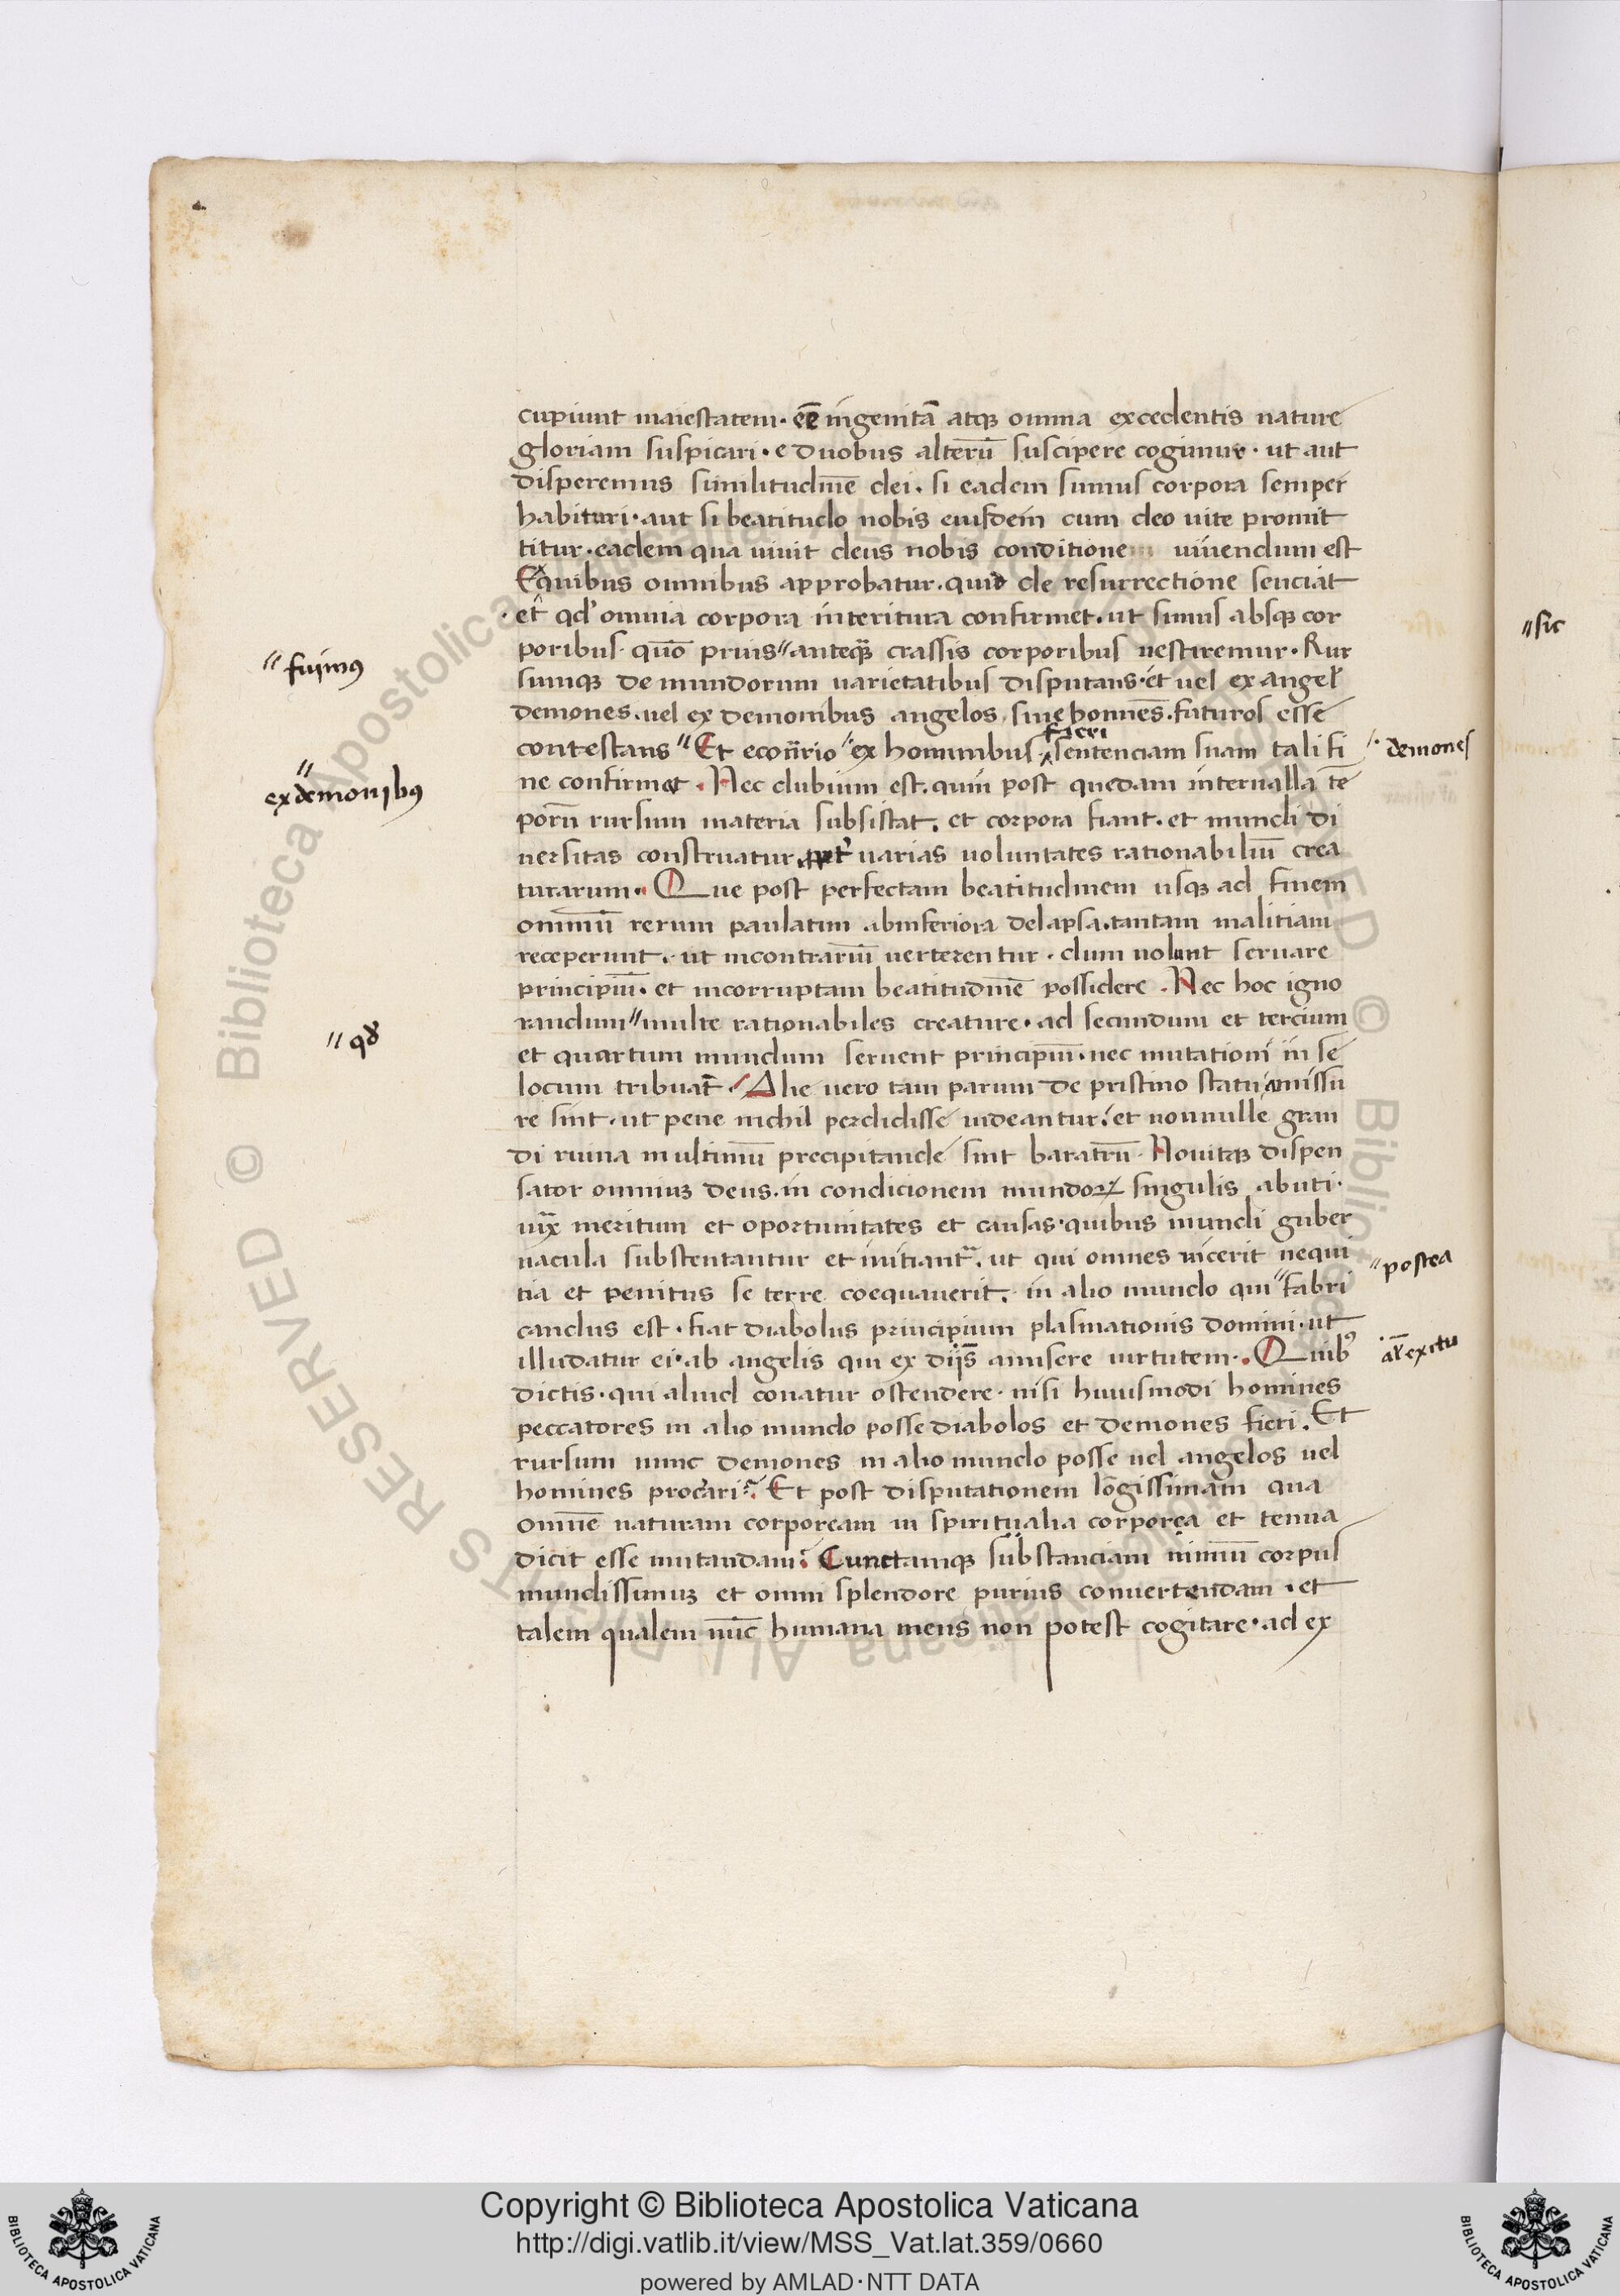 cupiunt maiestatem. eē ingenitā atqꝫ omnia excedentis nature
gloriam suspicari. e duobus alterū suscipere cogimur. ut aut
disperemus similitudinē dei. si eadem sumus corpora semper
habituri. aut si beatitudo nobis eiusdem cum deo uite promit
titur. eadem qua uiuit deus nobis conditione uiuendum est
Ex quibus omnibus approbatur. quid de resurrectione senciat
et qd' omnia corpora interitura confirmet. ut simus absqꝫ cor
poribus. quō prius〃 anteqꝫ̄ crassis corporibus uestiremur. Rur
〃 fuimꝰ
sumqꝫ de mundorum uarietatibus disputans. et uel ex angel'
demones. uel ex demonibus angelos, siue homīes. futuros esse
contestans〃 Et econ̄rio〃 ex hominibus fieri sentenciam suam tali fi
demones
〃 ex demonibꝰ
ne confirmet. Nec dubium est. quin post quedam interualla tē
porū rursum materia subsistat. et corpora fiant. et mundi di
uersitas construatur. ꝓpt' uarias uoluntates rationabiliū crea
turarum. Que post perfectam beatitudinem usqꝫ ad finem
omniū rerum paulatim ab inferiora delapsa. tantam malitiam
receperunt. ut incontrariū uerterentur. dum nolunt seruare
principiū. et incorruptam beatitudinē possidere. Nec hoc igno
randum〃 multe rationabiles creature. ad secundum et tercium
〃 qđ
et quartum mundum seruent principiū. nec mutationi in se
locum tribuāt. Alie uero tam parum de pristino statu amissu
re sint. ut pene nichil perdidisse uideantur. et nonnulle gran
di ruina in ultimū precipitande sint baratrū. Nouitqꝫ dispen
sator omniuꝫ deus. in condicionem mundoꝝ singulis abuti.
iux̄ meritum et oportunitates et causas. quibus mundi guber
nacula substentantur et initiant᷑. ut qui omnes uicerit nequi
tia et penitus se terre coequauerit. in alio mundo qui〃 fabri
〃 postea
candus est. fiat diabolus principium plasmationis domini. ut
illudatur ei. ab angelis qui ex diis amisere uirtutem. Quibꝰ
al' exitu
dictis. qui aliud conatur ostendere. nisi huiusmodi homines
peccatores in alio mundo posse diabolos et demones fieri. Et
rursum nunc demones in alio mundo posse uel angelos uel
homines procreari. Et post disputationem lōgissimam qua
omnē naturam corpoream in spiritualia corporea et tenua
dicit esse mutandam. Cunctamqꝫ substanciam in unū corpus
mundissimuꝫ et omni splendore purius conuertendam. et
talem qualem nūc humana mens non potest cogitare. ad ex
〃 sic
© Biblioteca Apostolica Vaticana ALL RIGHTS RESERVED
Copyright © Biblioteca Apostolica Vaticana
http://digi.vatlib.it/view/MSS_Vat.lat.359/0660
powered by AMLAD·NTT DATA
BIBLIOTECA APOSTOLICA VATICANA
BIBLIOTECA APOSTOLICA VATICANA